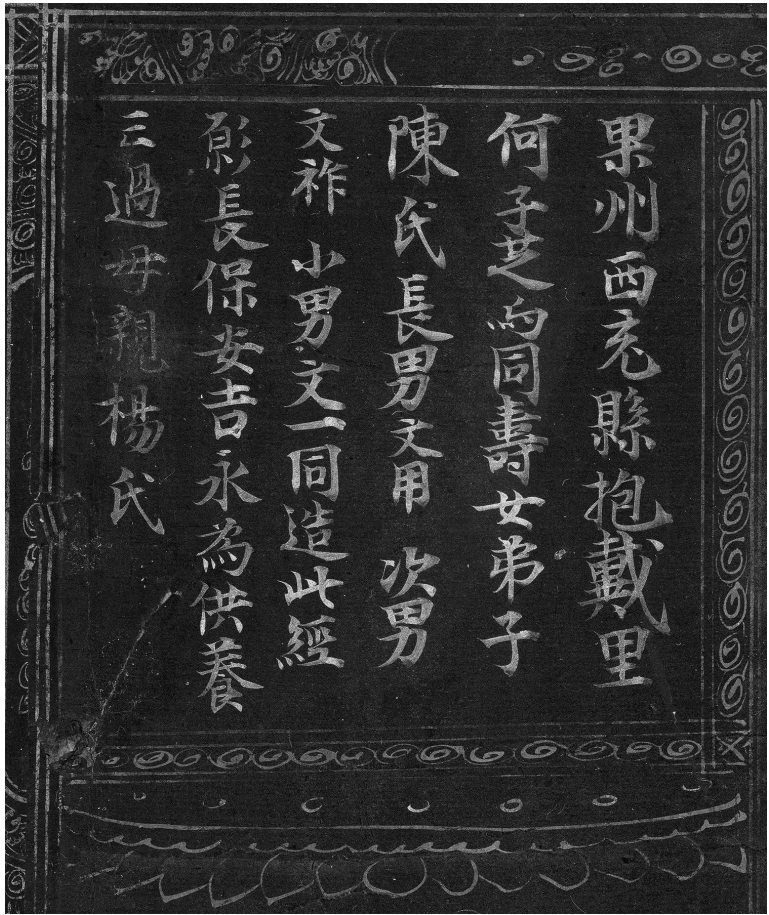 果州西充縣抱戴里
何子芝同壽女弟子
陳氏長男文用 次男
文祚 小男文一同造此經
願長保安吉永為供養
亡過母親楊氏